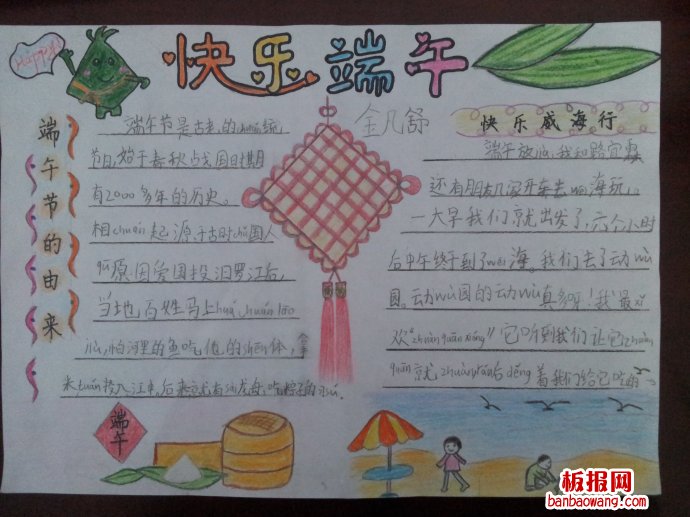 Happy
快乐端午
金凡舒
端午节的由来
端午节是古老的chuán统
节日,始于春秋战国时期
有2000多年的历史。
相chuán起源于古时chǔ国人
qū原因爱国投汨罗江后,
当地百姓马上huá chuán lāo
怕河里的鱼吃他的 体,拿
米tuán投入江中,后来就有 龙舟,吃粽子的 sú.
快乐威海行
端午放假,我和路宜
还有朋友几家开车去wēi海玩。
一大早我们就出发了,六个小时
后中午终于到了wēi海。我们去了动wù
园。动wù园的动wù真多呀!我最xǐ
欢“zhuàn quān xióng”它听到我们让它zhuàn
quān就zhuàn rán后děng着我们给它吃的
端午
板报网
banbaowang.com